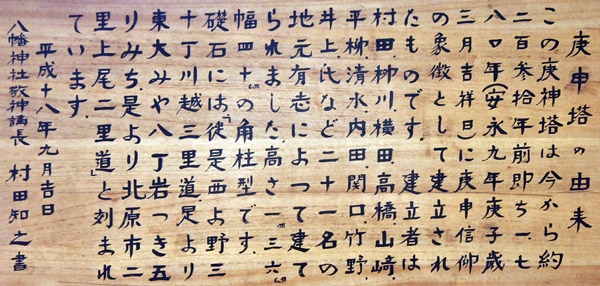 庚申塔の由来
この庚神塔は今から約
二百参拾年前即ち一七
八〇年(安永九年庚子歳
三月吉祥日)に庚申信仰
の象徴として建立され
たものです。建立者は
村田.柳川.横田.高橋.山﨑.
平柳.清水.内田.関口.竹野.
井上.氏など二十一名の
地元有志によって建て
られました.高さ一三六㎝
幅四十㎝の角柱型です。
礎石には「従是西よ野三
十丁川越三里道.是より
東大みや八丁岩つき五
りみち.是より北原市二
里上尾二里道」と刻まれ
ています。
平成十八年九月吉日
八幡神社敬神講長 村田知之書